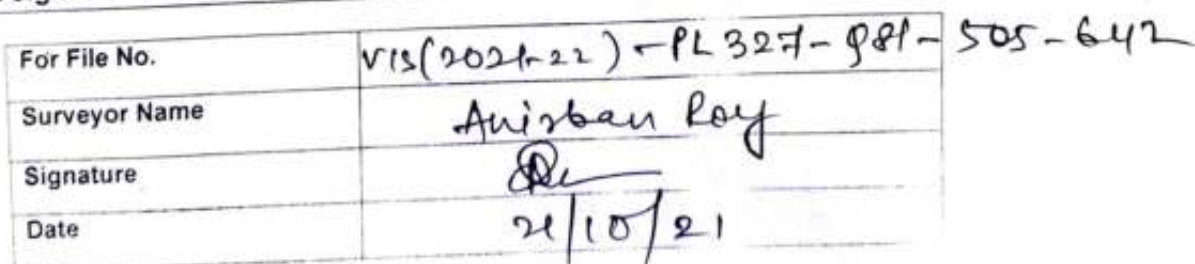 For File No. VIS(2021-22)-PL327-981-505-642
Surveyor Name Anirban Roy
Signature
Date 21/10/21